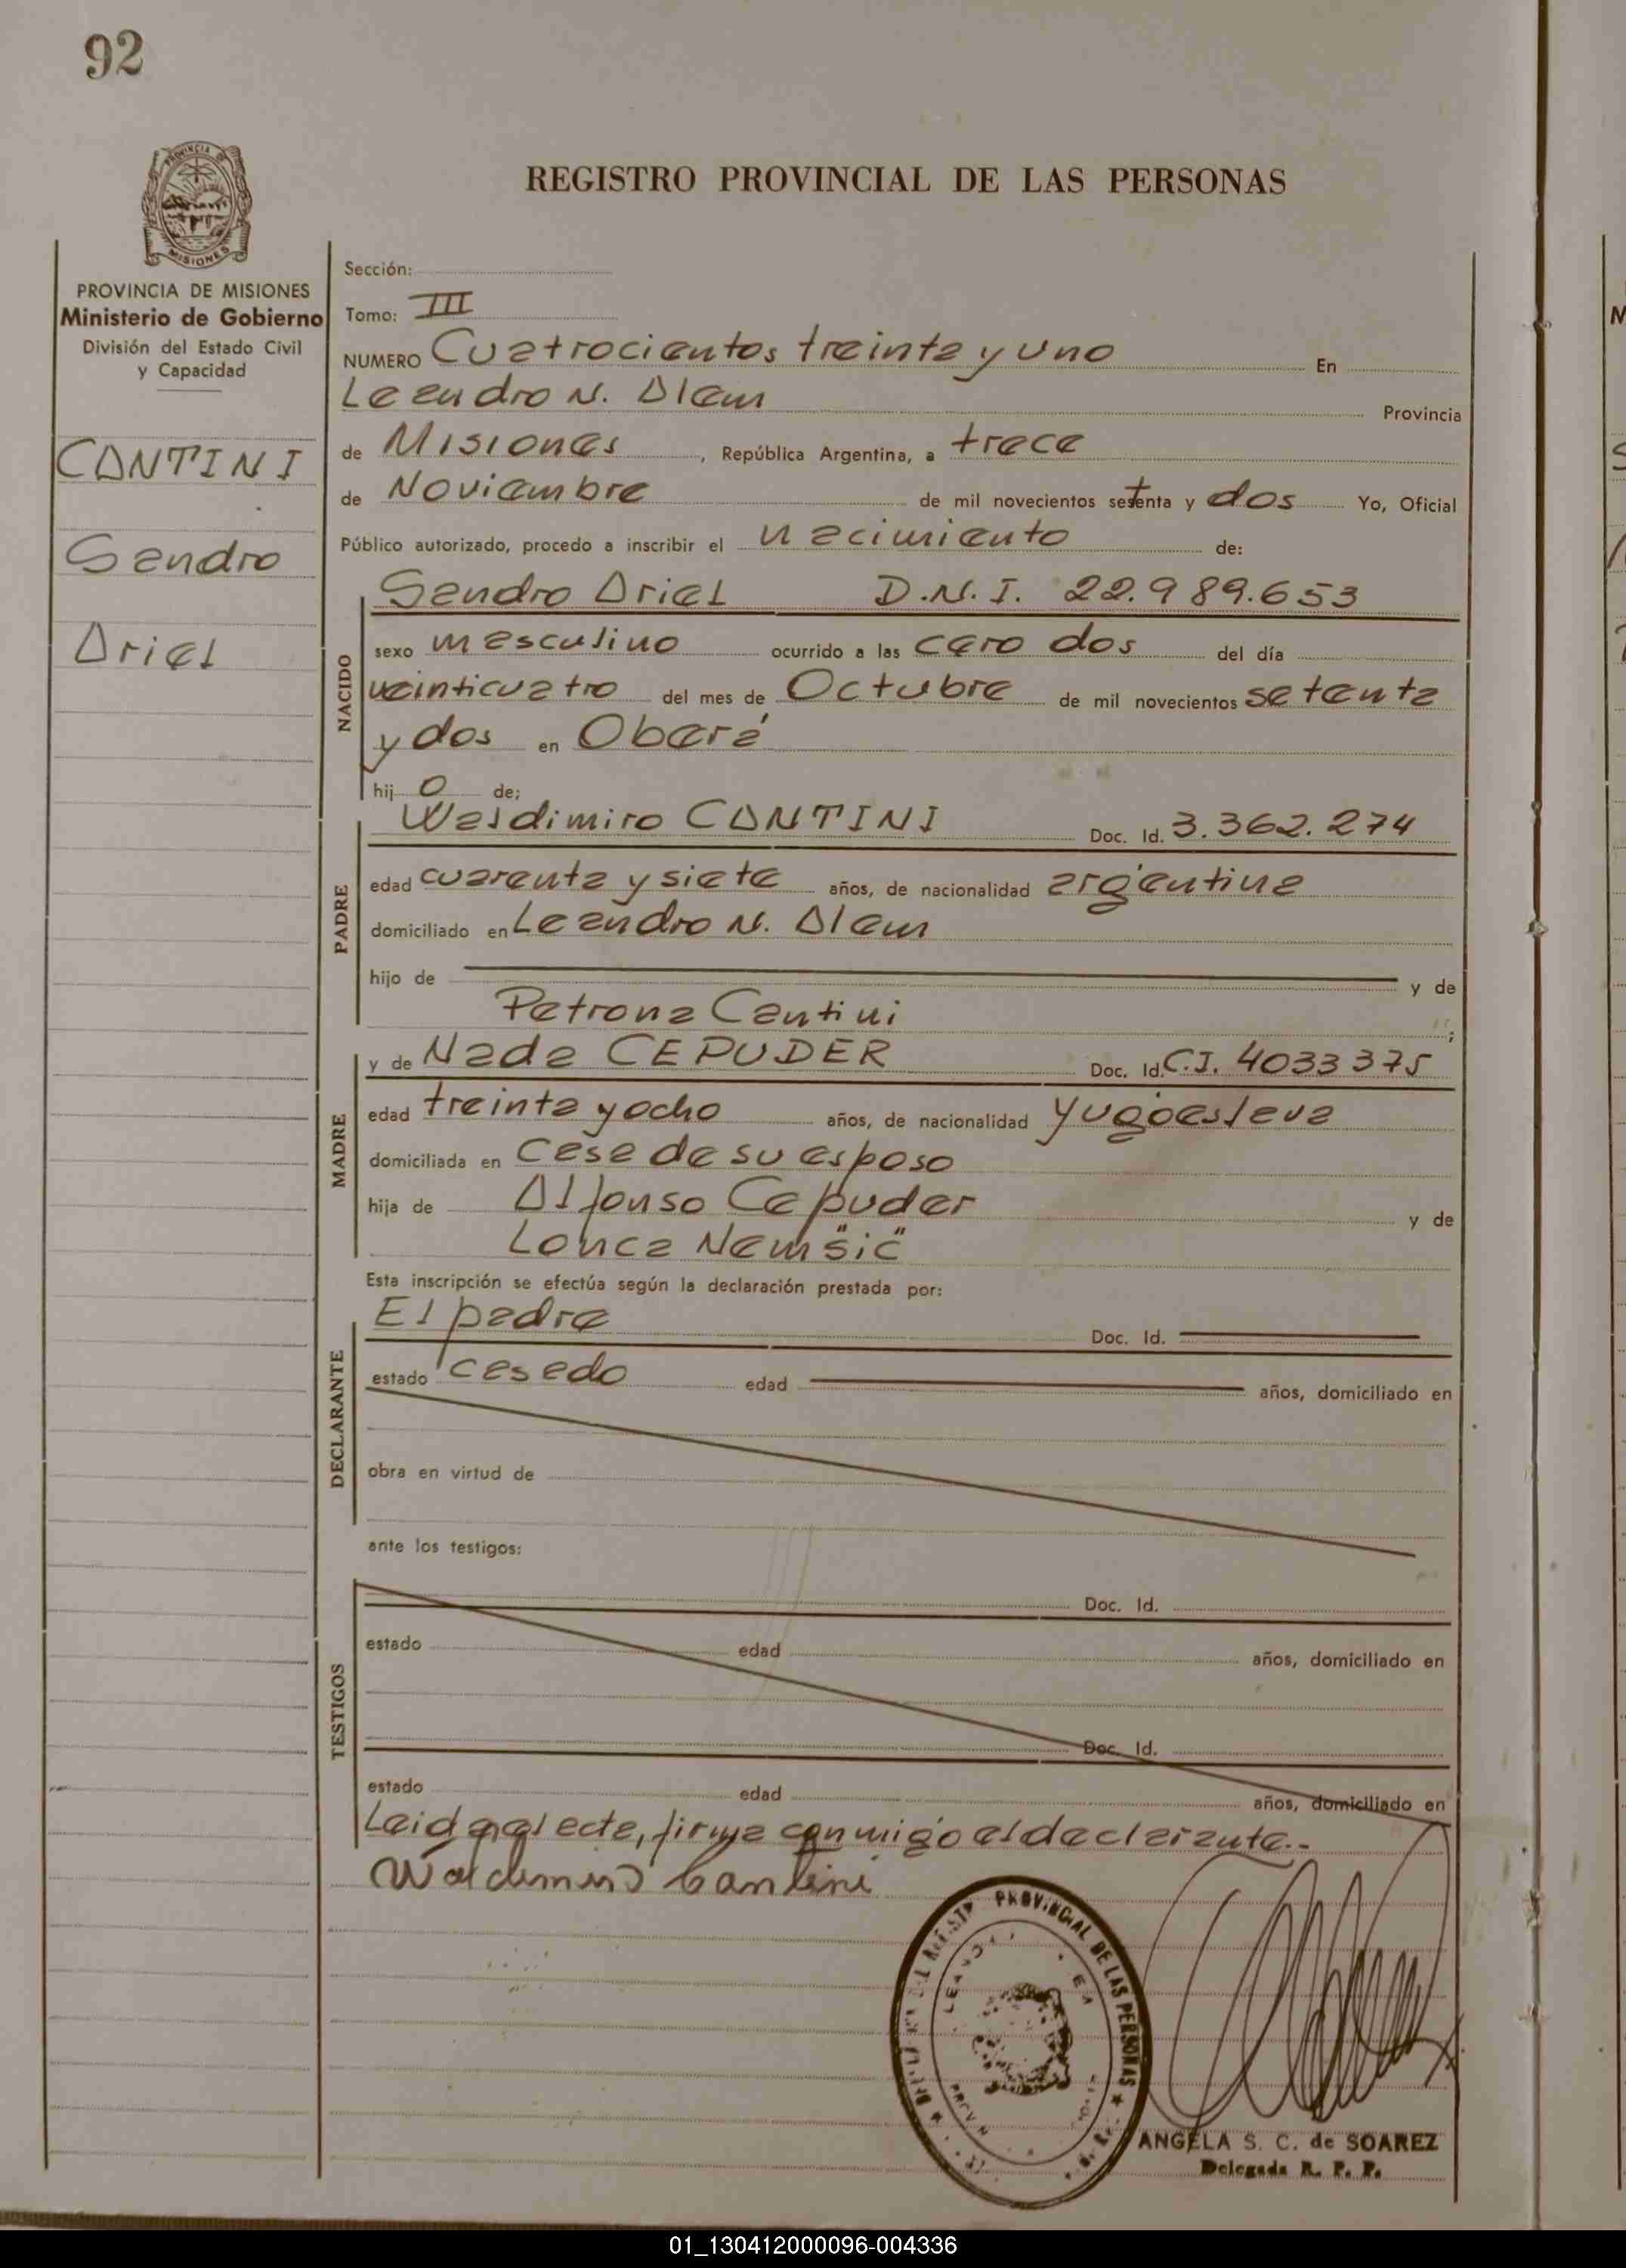 92
PROVINCIA DE
MISIONES
REGISTRO PROVINCIAL DE LAS PERSONAS
PROVINCIA DE MISIONES
Ministerio de Gobierno
División del Estado Civil
y Capacidad
CANTINI
Sandro
Ariel
Sección:
Tomo: III
NUMERO Cuatrocientos treinta y uno En
Leandro N. Alem Provincia
de Misiones, República Argentina, a trece
de Noviembre de mil novecientos setenta y dos Yo, Oficial
Público autorizado, procedo a inscribir el nacimiento de:
NACIDO
Sandro Ariel D.N.I. 22.989.653
sexo masculino ocurrido a las cero dos del día
veinticuatro del mes de Octubre de mil novecientos setenta
y dos en Oberá
hij o de;
PADRE
Waldimiro CANTINI Doc. Id. 3.362.274
edad cuarenta y siete años, de nacionalidad argentina
domiciliado en Leandro N. Alem
hijo de y de
Petrona Cantini ;
MADRE
y de Nada CEPUDER Doc. Id. C.I. 4033375
edad treinta y ocho años, de nacionalidad yugoeslava
domiciliada en casa de su esposo
hija de Alfonso Cepuder y de
Lonca Nemšič
Esta inscripción se efectúa según la declaración prestada por:
DECLARANTE
El padre Doc. Id.
estado casado edad años, domiciliado en
obra en virtud de
ante los testigos:
TESTIGOS
Doc. Id.
estado edad años, domiciliado en
Doc. Id.
estado edad años, domiciliado en
Leida el acta, firma conmigo el declarante.-
Waldimiro Cantini
PROVINCIAL DE LAS PERSONAS
ANGELA S. C. de SOAREZ
Delegada R. P. P.
01_130412000096-004336